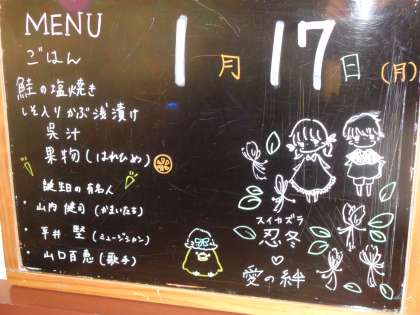 MENU
ごはん
鮭の塩焼き
しそ入りかぶ浅漬け
呉汁
果物(はれひめ)
1月17日(月)
誕生日の有名人
・山内健司(かまいたち)
・平井堅(ミュージシャン)
・山口百恵(歌手)
スイカズラ
忍冬
愛の絆